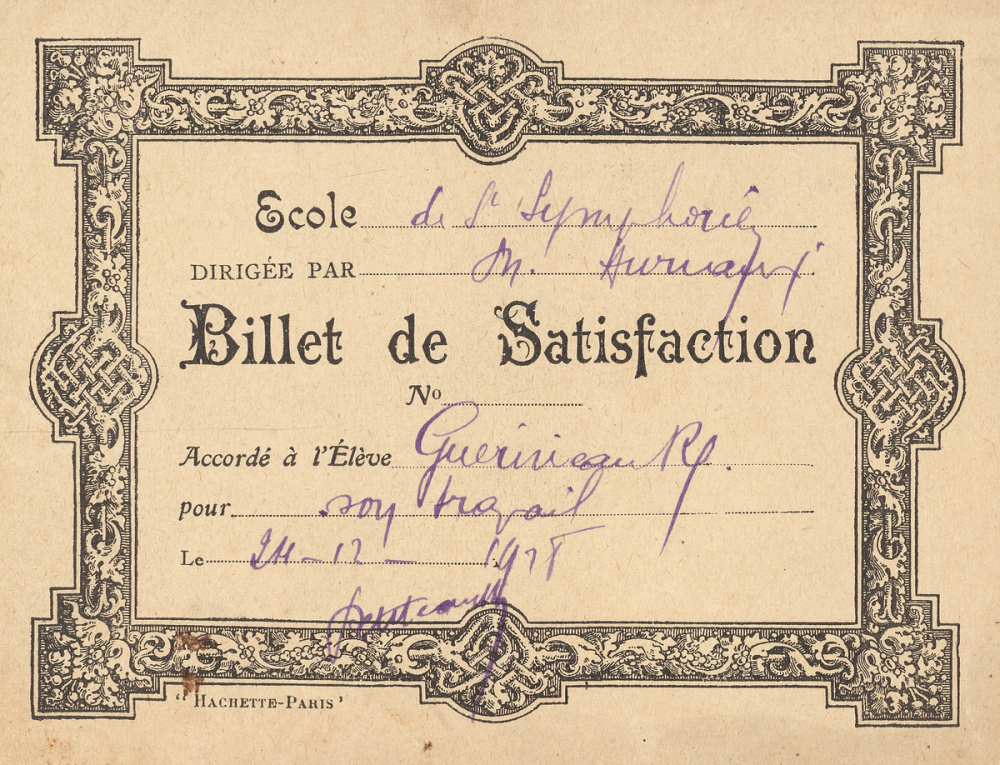 Ecole de St Symphorien
DIRIGÉE PAR M.
Billet de Satisfaction
No
Accordé à l'Élève Guérineau
pour son travail
Le 24-12-
"HACHETTE-PARIS"